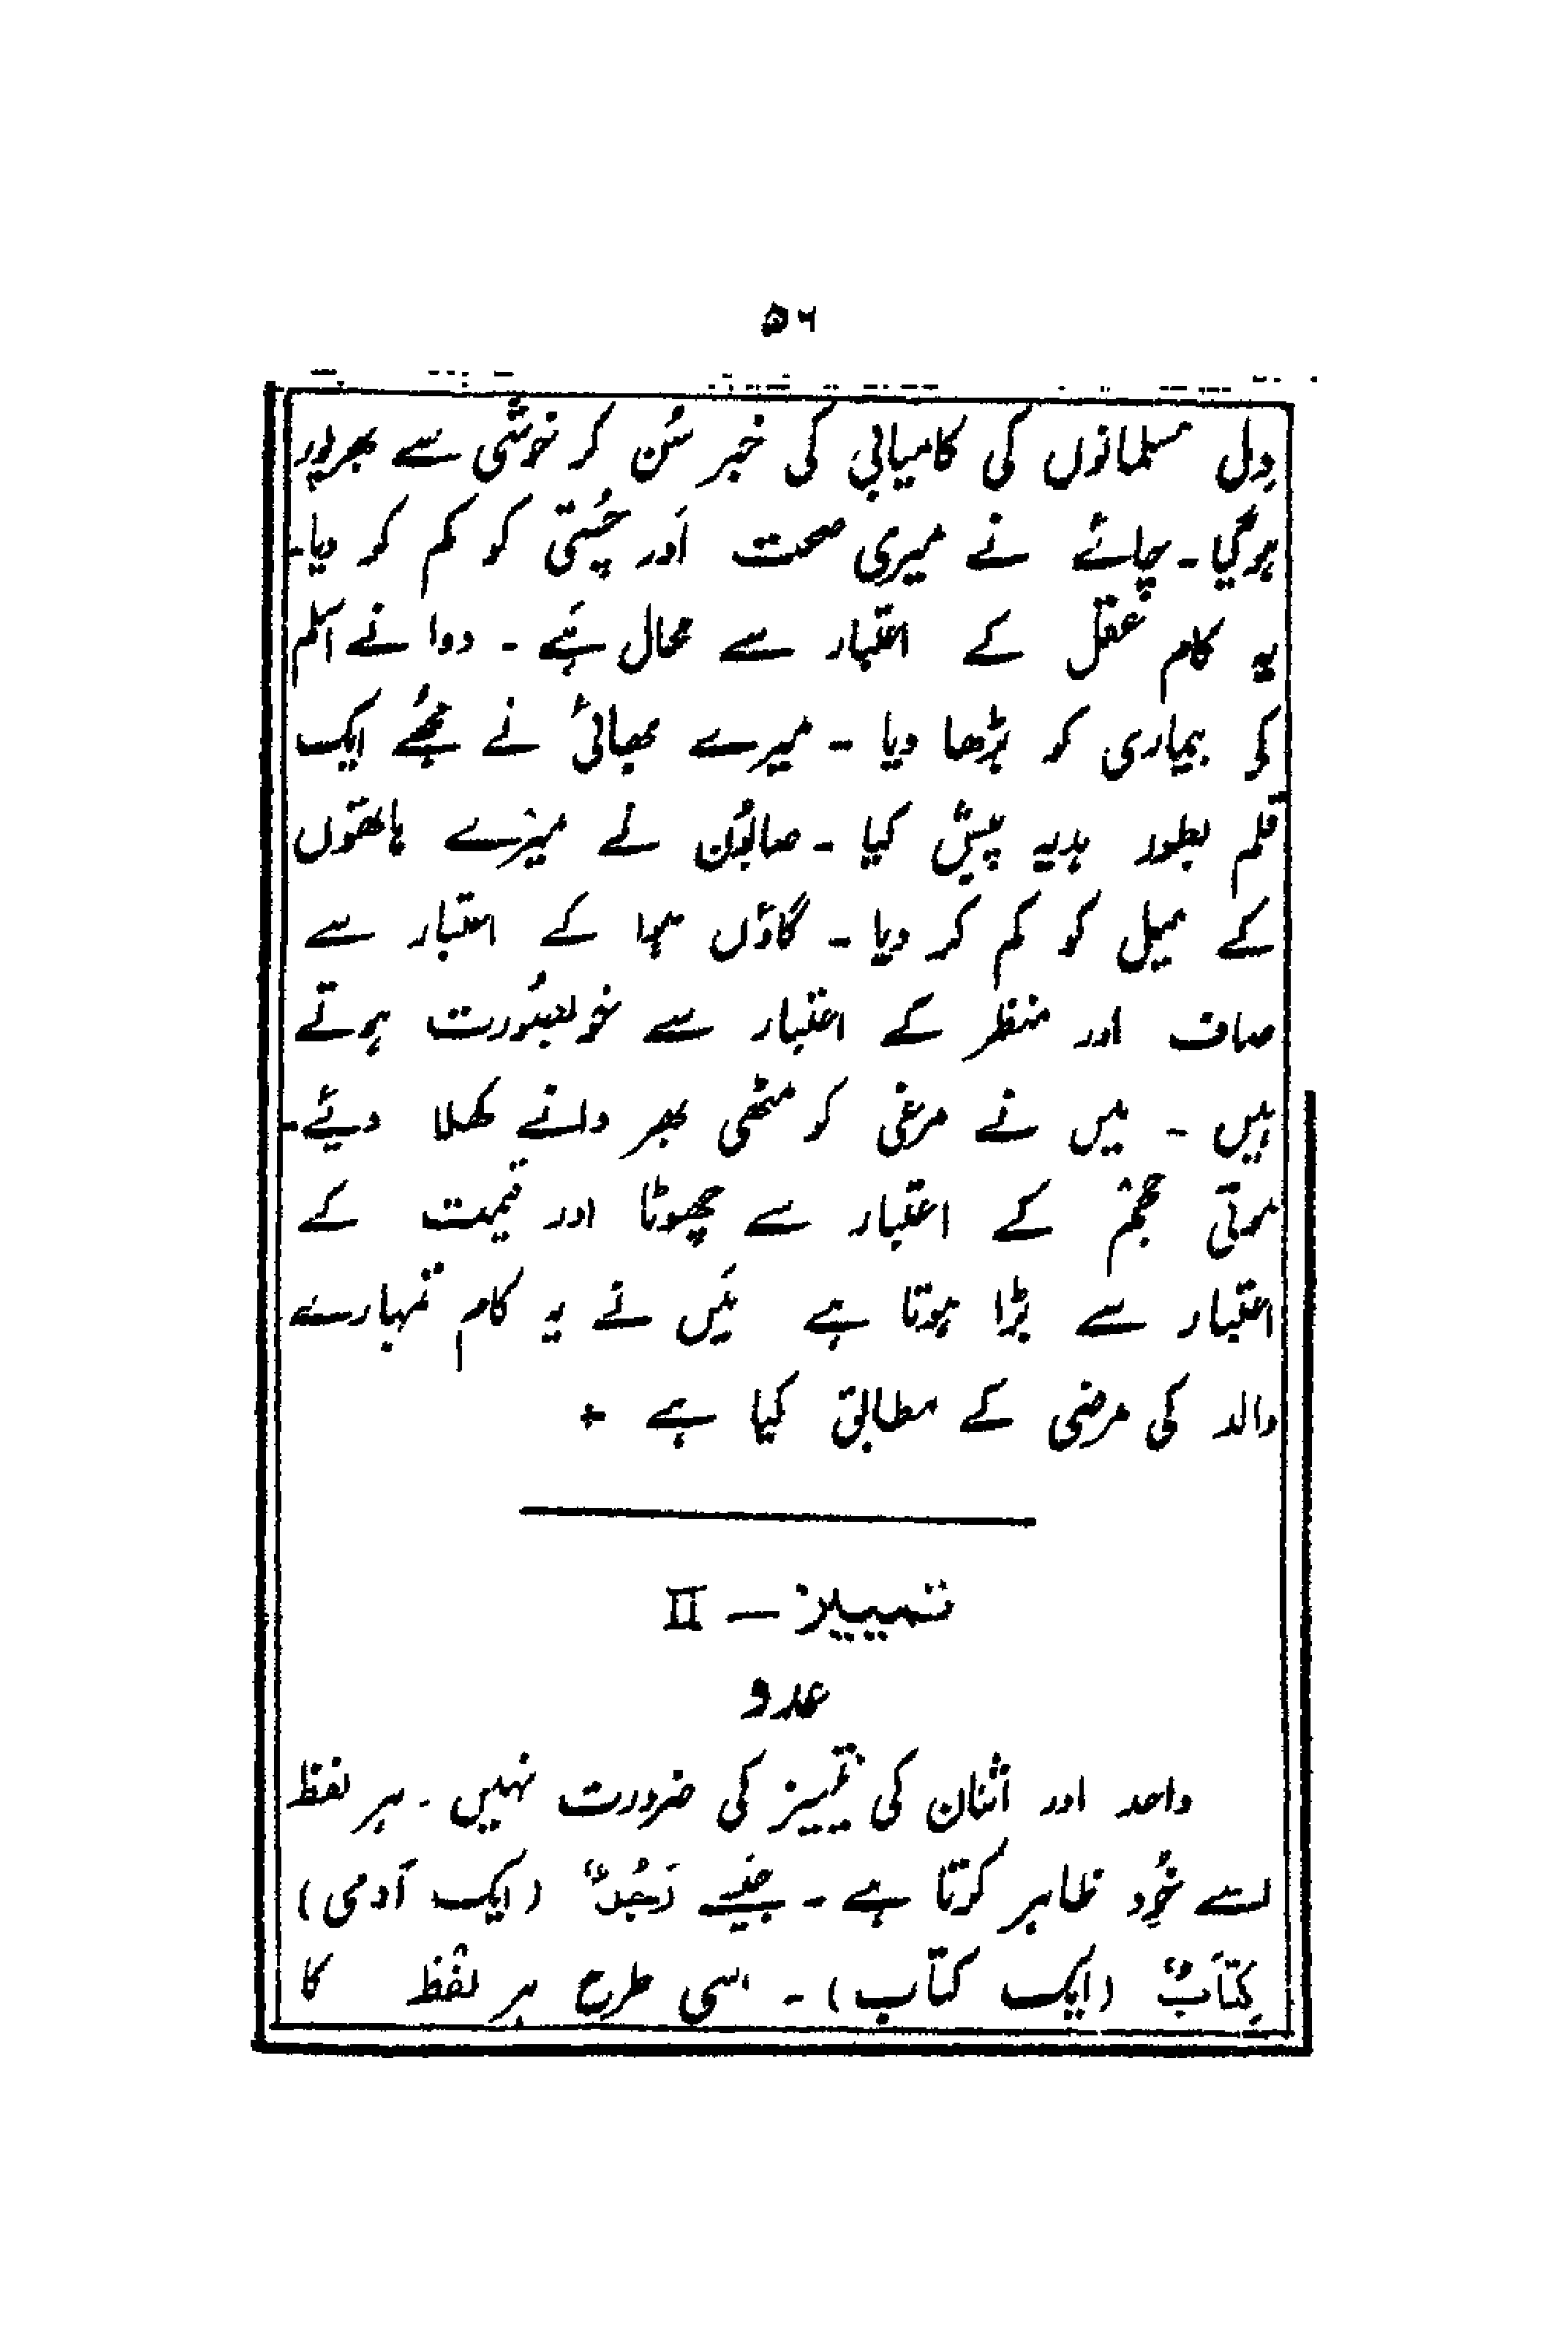 ۵۶
دِل مسلمانوں کی کامیابی کی خبر سُن کر خوشی سے بھرپور
ہوگیا۔ چائے نے میری صحت اَور چُستی کو کم کر دیا۔
یہ کام عقل کے اعتبار سے محال ہَے ۔ دوا نے اسلم
کی بیماری کو بڑھا دیا ۔ میرے بھائی نے مجُھے ایک
قلم بطور ہدیہ پیش کیا ۔ صابُون نے میرے ہاتھوں
کے میل کو کم کر دیا ۔ گاؤں ہوا کے اعتبار سے
صاف اور منظر کے اعتبار سے خوبصُورت ہوتے
ہیں ۔ میں نے مرغی کو مٹھی بھر دانے کھلا دیئے۔
موتی حجم کے اعتبار سے چھوٹا اور قیمت کے
اعتبار سے بڑا ہوتا ہے مَیں نے یہ کام تمہارے
والد کی مرضی کے مطابق کیا ہے +
تمییز — II
عدد
واحد اور اثنان کی تمییز کی ضرورت نہیں ۔ ہر لفظ
اسے خُود ظاہر کرتا ہے ۔ جَیسے رَجُلٌ (ایک آدمی)
کِتَابٌ (ایک کتاب) ۔ اسی طرح ہر لفظ کا